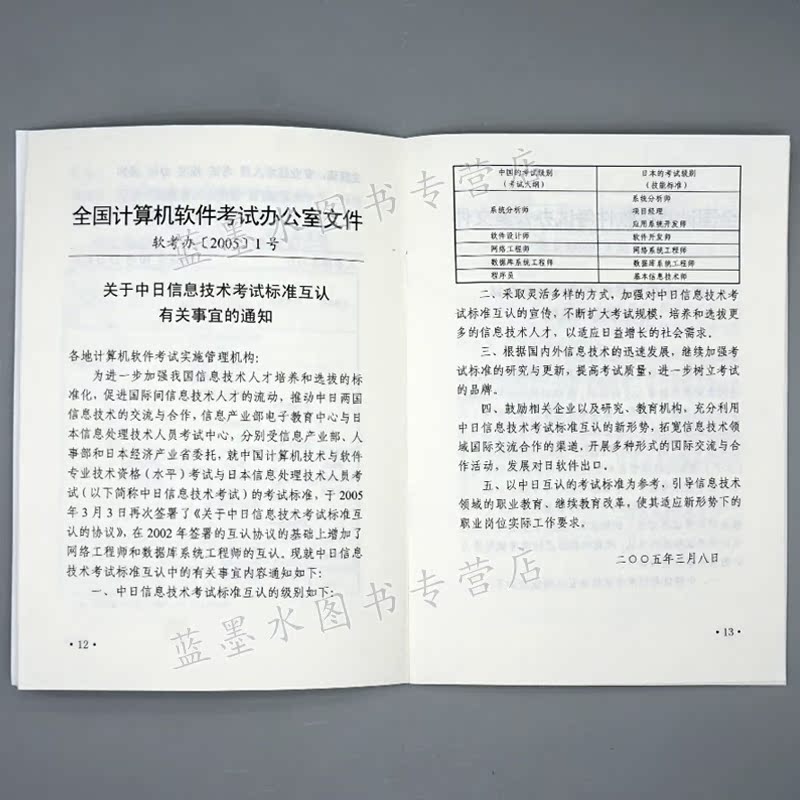 全国计算机软件考试办公室文件
软考办〔2005〕1号
关于中日信息技术考试标准互认
有关事宜的通知
各地计算机软件考试实施管理机构：
为进一步加强我国信息技术人才培养和选拔的标
准化，促进国际间信息技术人才的流动，推动中日两国
信息技术的交流与合作，信息产业部电子教育中心与日
本信息处理技术人员考试中心，分别受信息产业部、人
事部和日本经济产业省委托，就中国计算机技术与软件
专业技术资格（水平）考试与日本信息处理技术人员考
试（以下简称中日信息技术考试）的考试标准，于2005
年3月3日再次签署了《关于中日信息技术考试标准互
认的协议》，在2002年签署的互认协议的基础上增加了
网络工程师和数据库系统工程师的互认。现就中日信息
技术考试标准互认中的有关事宜内容通知如下：
一、中日信息技术考试标准互认的级别如下：
·12·
中国的考试级别 日本的考试级别
（考试大纲） （技能标准）
系统分析师
系统分析师 项目经理
应用系统开发师
软件设计师 软件开发师
网络工程师 网络系统工程师
数据库系统工程师 数据库系统工程师
程序员 基本信息技术师
二、采取灵活多样的方式，加强对中日信息技术考
试标准互认的宣传，不断扩大考试规模，培养和选拔更
多的信息技术人才，以适应日益增长的社会需求。
三、根据国内外信息技术的迅速发展，继续加强考
试标准的研究与更新，提高考试质量，进一步树立考试
的品牌。
四、鼓励相关企业以及研究、教育机构，充分利用
中日信息技术考试标准互认的新形势，拓宽信息技术领
域国际交流合作的渠道，开展多种形式的国际交流与合
作活动，发展对日软件出口。
五、以中日互认的考试标准为参考，引导信息技术
领域的职业教育、继续教育改革，使其适应新形势下的
职业岗位实际工作要求。
二〇〇五年三月八日
·13·
蓝墨水图书专营店
蓝墨水图书专营店